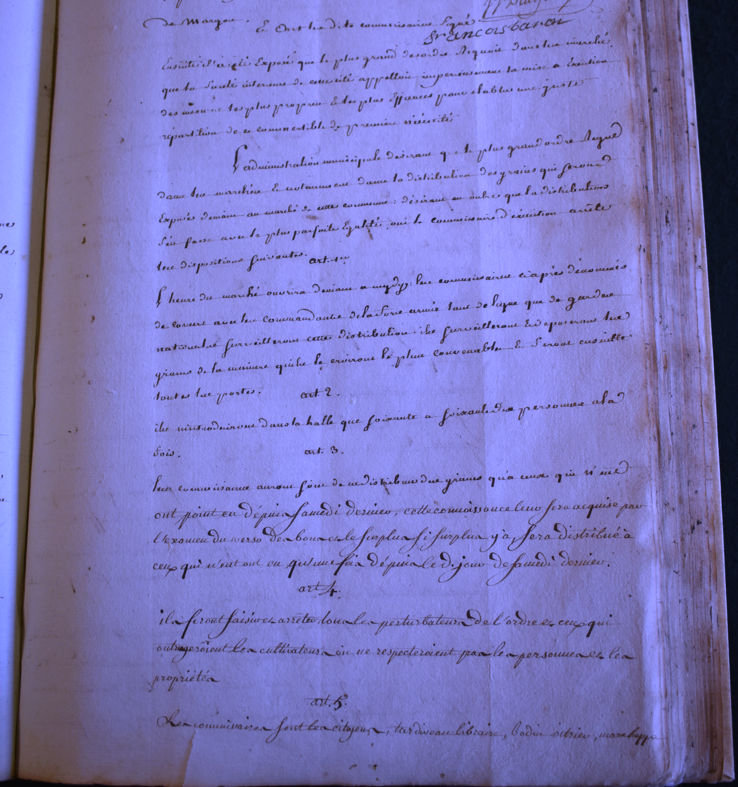 de Margou. Et Ont les dits commissaires signé
francois baron
Ensuite Il a été Exposé que le plus grand desordre Regnoit dans les marchés
que la sureté interieure de cette cité appelloit imperieusement la mise a Exécution
des mesures les plus propres Et les plus Efficaces pour etablir une juste
répartition de ce comestible de premiere nécessité
L'administration municipale désirant que le plus grand ordre Regne
dans les marchés Et notamment dans la distribution des grains qui seront
Exposés demain au marché de cette commune ; désirant en outre que la distribution
s'en fasse avec la plus parfaite Egalité, oui le commissaire d'exécution arrête
les dispositions suivantes.
art. 1er
L'heure du marché ouvrira demain a midy, les commissaires ci après dénommés
de concert avec les commandants de la force armée tant de ligne que de garde
nationale surveilleront cette distribution. ils surveilleront Et disposeront les
grains de la maniere qu'ils le croiront le plus convenable Et seront ensuite
toutes les portes.
art 2.
ils n'introduiront dans la halle que soixante a soixante dix personnes a la
fois.
art. 3.
Les commissaires auront soin de ne distribuer des grains qu'a ceux qui n'en
ont point eu dépuis samedi dernier, cette connoissance leur sera acquise par
l'Examen du verso des bons et le surplus si surplus y a, sera distribué à
ceux qui n'en ont eu qu'une fois dépuis le d. jour de samedi dernier.
art 4.
ils feront saisir et arrêter tous les perturbateurs de l'ordre et ceux qui
outrageroient les cultivateurs ou ne respecteroient pas les personnes et les
propriétés
art. 5.
Les commissaires sont les citoyens, tardiveau libraire, bodin